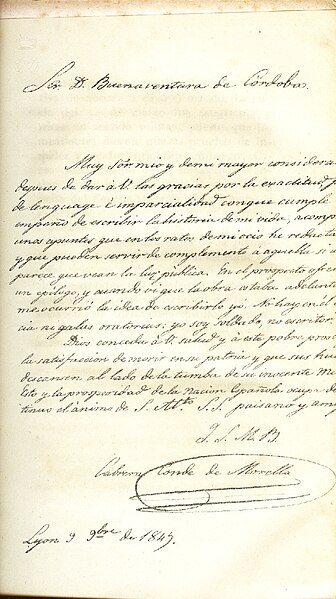 Sor. D. Buenaventura de Córdoba.
Muy Sor. mio y de mi mayor considera
despues de dar á V. las gracias por la exactitud,
de lenguage é imparcialidad con que cumple
empeño de escribir la historia de mi vida, acomp
unos apuntes que en los ratos de mi ocio he redacta
y que pueden servir de complemento á aquella si
parece que vean la luz pública. En el prospecto ofre
un epílogo, y cuando vi que la obra estaba adelanta
me ocurrió la idea de escribirlo yo. No hay en él
cia ni galas oratorias: yo soy soldado, no escritor.
Dios conceda á V. salud y á este pobre pros
la satisfaccion de morir en su patria y que sus hue
descansen al lado de la tumba de su inocente Ma
Esto y la prosperidad de la Nacion Española ocupa de
tinuo el ánimo de S. Atto. S. S. paisano y ami
Q. S. M. B.
Cabrera Conde de Morella
Lyon 9 9bre de 1845.